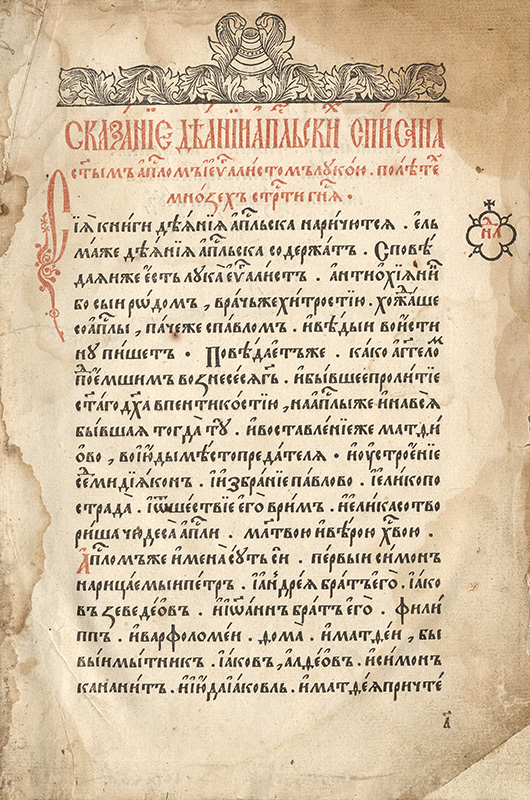 Сказа́нїе дѣѧ́нїи а҆пⷭ҇льски́хъ є҆пи́сана
ст҃ымъ а҆пⷭ҇ломъ и҆ є҆ѵⷢ҇али́стомъ лꙋко́ю . по лѣ́те
мно́зехъ стрⷭ҇ти гнⷭ҇ѧ .
Сїѧ̀ кни́ги дѣѧ́нїѧ а҆пⷭ҇льска нари́чютсѧ . є҆ль
ма́же дѣѧ́нїѧ а҆пⷭ҇льска содержа́тъ . Спове́
даѧи же є҆́сть лꙋка̀ є҆ѵⷢ҇али́стъ . а҆нтиѻхїѧни́нъ
бо сы́и рѡ́домъ , вра́чь же хи́тростїю . хожда́ше
со а҆пⷭ҇лы , па́че же с па́вломъ . и҆ ве́дыи вои́сти
нꙋ пи́шетъ . Повѣ́даетъ же . ка́ко а҆́гг҃еломъ
пое́мшимъ вознесе́сѧ гдⷭ҇ь . и҆ бы́вшее проли́тїе
ст҃а́го дх҃а в пентико́стїю , на а҆пⷭ҇лы же и҆ на всѧ̀
бы́вшаѧ тогда̀ тꙋ̀ . и҆ воставле́нїе же матѳи́
ово , во и҆ю́ды мѣ́сто преда́телѧ . и҆ ᲂу҆строе́нїе
се́дми дїѧ́конъ . и҆ и҆збра́нїе па́влово . и҆ є҆ли́ко по
страда̀ . и҆ ѿше́ствїе є҆гѡ̀ в ри́мъ . и҆ є҆ли́ка сотво
ри́ша чюдеса̀ а҆пⷭ҇ли . мл҃твою и҆ вѣ́рою хрⷭ҇то́вою .
А҆пⷭ҇ломъ же и҆мена̀ сꙋ́ть сїѝ . пе́рвыи си́монъ
нарица́емыи пе́тръ . и҆ а҆ндре́ѧ бра́тъ є҆го̀ . і҆а́ко
въ зеведе́овъ . и҆ і҆ѡа́ннъ бра́тъ є҆гѡ̀ . фили́
ппъ . и҆ варфоломе́и . ѳома̀ . и҆ матѳе́и , бы́
выи мы́тникъ . і҆а́ковъ , а҆лѳе́овъ . и҆ си́монъ
канани́тъ . и҆ і҆ю́да і҆а́ковль . и҆ матѳе́ѧ причте́
а҃